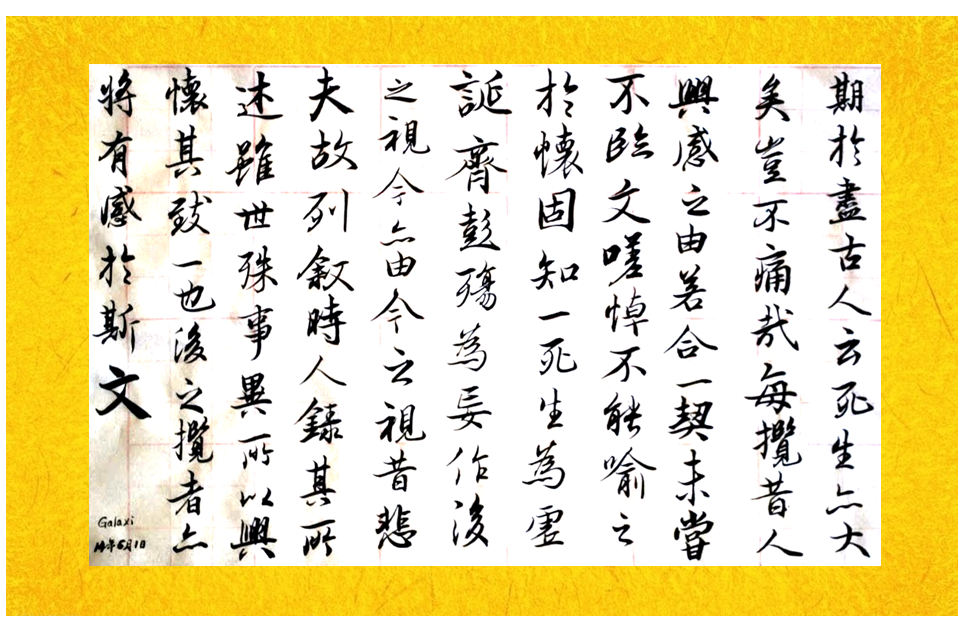 期於盡古人云死生亦大
矣豈不痛哉每攬昔人
興感之由若合一契未嘗
不臨文嗟悼不能喻之
於懷固知一死生為虛
誕齊彭殤為妄作後
之視今亦由今之視昔悲
夫故列敘時人錄其所
述雖世殊事異所以興
懷其致一也後之攬者亦
將有感於斯文
Galaxi
14年6月1日